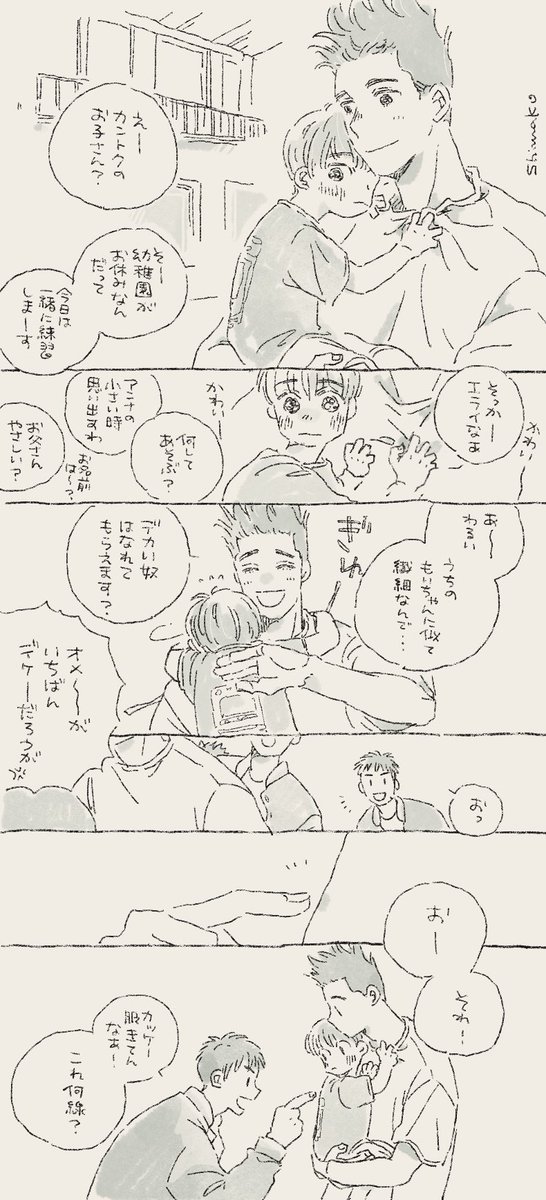 Shimako
えー
カントクの
お子さん？
そー
幼稚園が
お休みなん
だって
今日は
一緒に練習
しまーす
そっかー
エライなぁ
かわいー
かわいー
何して
あそぶ？
アンナの
小さい時
思い出すわ
お名前
はー？
お父さん
やさしい？
あ〜〜
わるい
うちの
もいちゃんに似て
繊細なんで…
ぎゅ
デカい奴
はなれて
もらえます？
オメ〜〜が
いちばん
デケーだろうが
おっ
おー
そわ…
カッケー
服きてん
なぁー
これ何線？